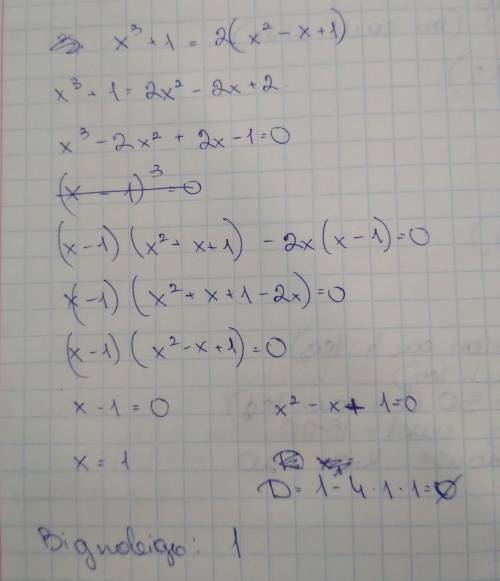 x³ + 1 = 2(x² - x + 1)
x³ + 1 = 2x² - 2x + 2
x³ - 2x² + 2x - 1 = 0
(x - 1)³ = 0
(x - 1)(x² + x + 1) - 2x(x - 1) = 0
x - 1)(x² + x + 1 - 2x) = 0
(x - 1)(x² - x + 1) = 0
x - 1 = 0 x² - x + 1 = 0
x = 1
D = 1 - 4 · 1 · 1 =
Відповідь: 1